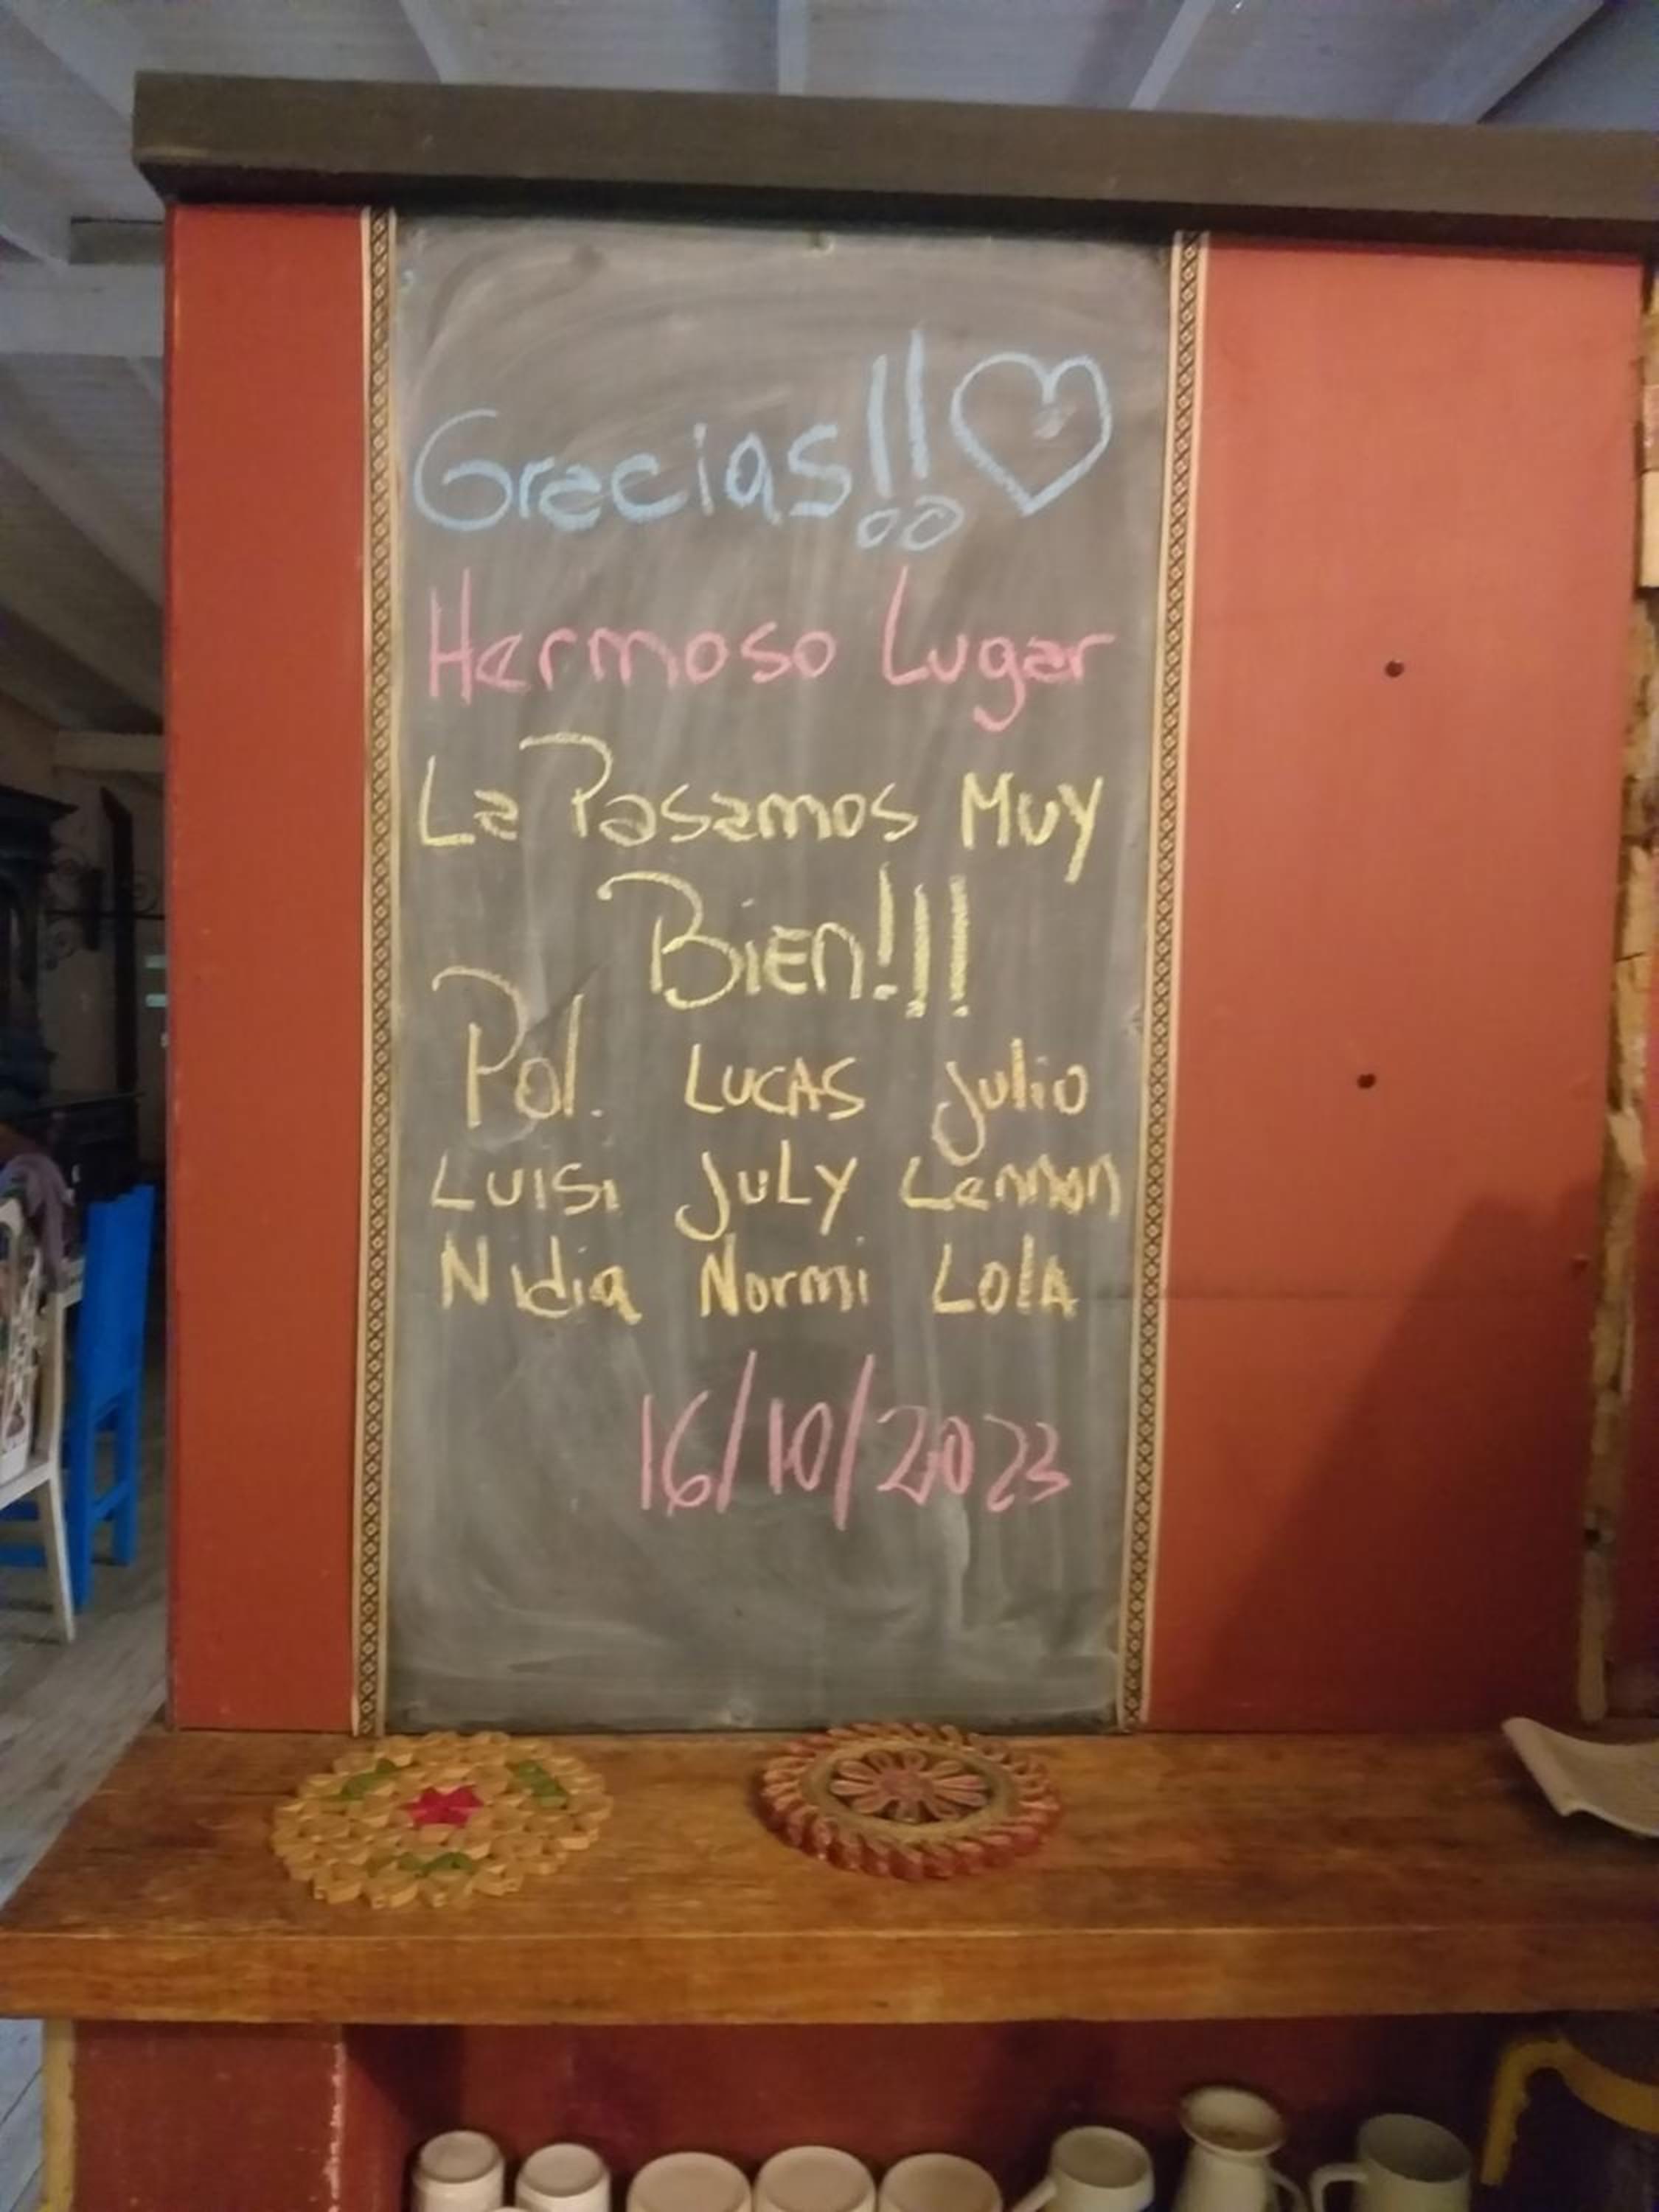 Gracias!!
Hermoso Lugar
La Pasamos Muy
Bien!!!
Pol. LUCAS Julio
LUISI JULY Lennon
Nidia Normi LolA
16/10/2023